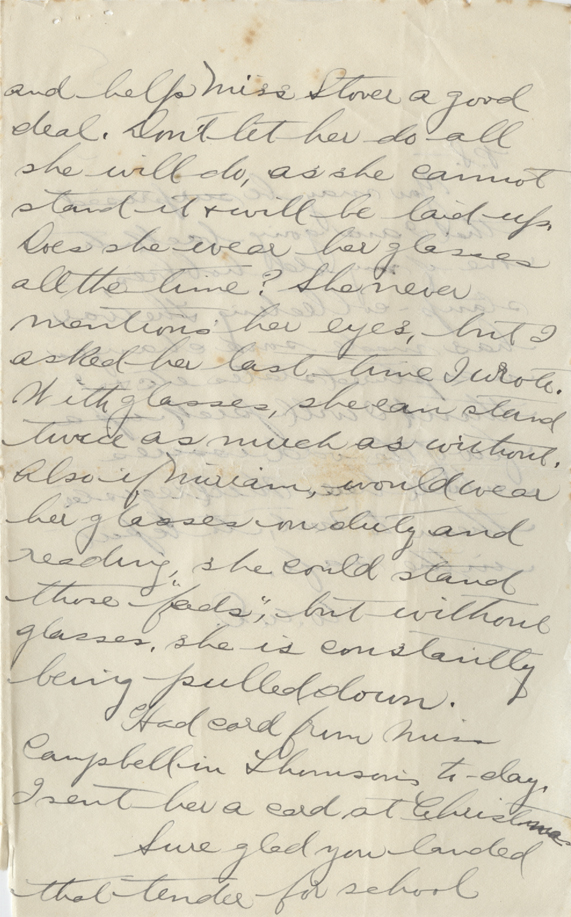 and helps Miss Stover a good
deal. Don't let her do all
she will do, as she cannot
stand it & will be laid-up.
Does she wear her glasses
all the time? She never
mentions her eyes, but I
asked her last time I wrote.
With glasses, she can stand
twice as much as without.
Also if Miriam, would wear
her glasses on duty and
reading, she could stand
those "fads", but without
glasses, she is constantly
being pulled down.
Had card from Miss
Campbell in Thomson's to-day.
I sent her a card at Christmas
Sure glad you landed
that tender for school